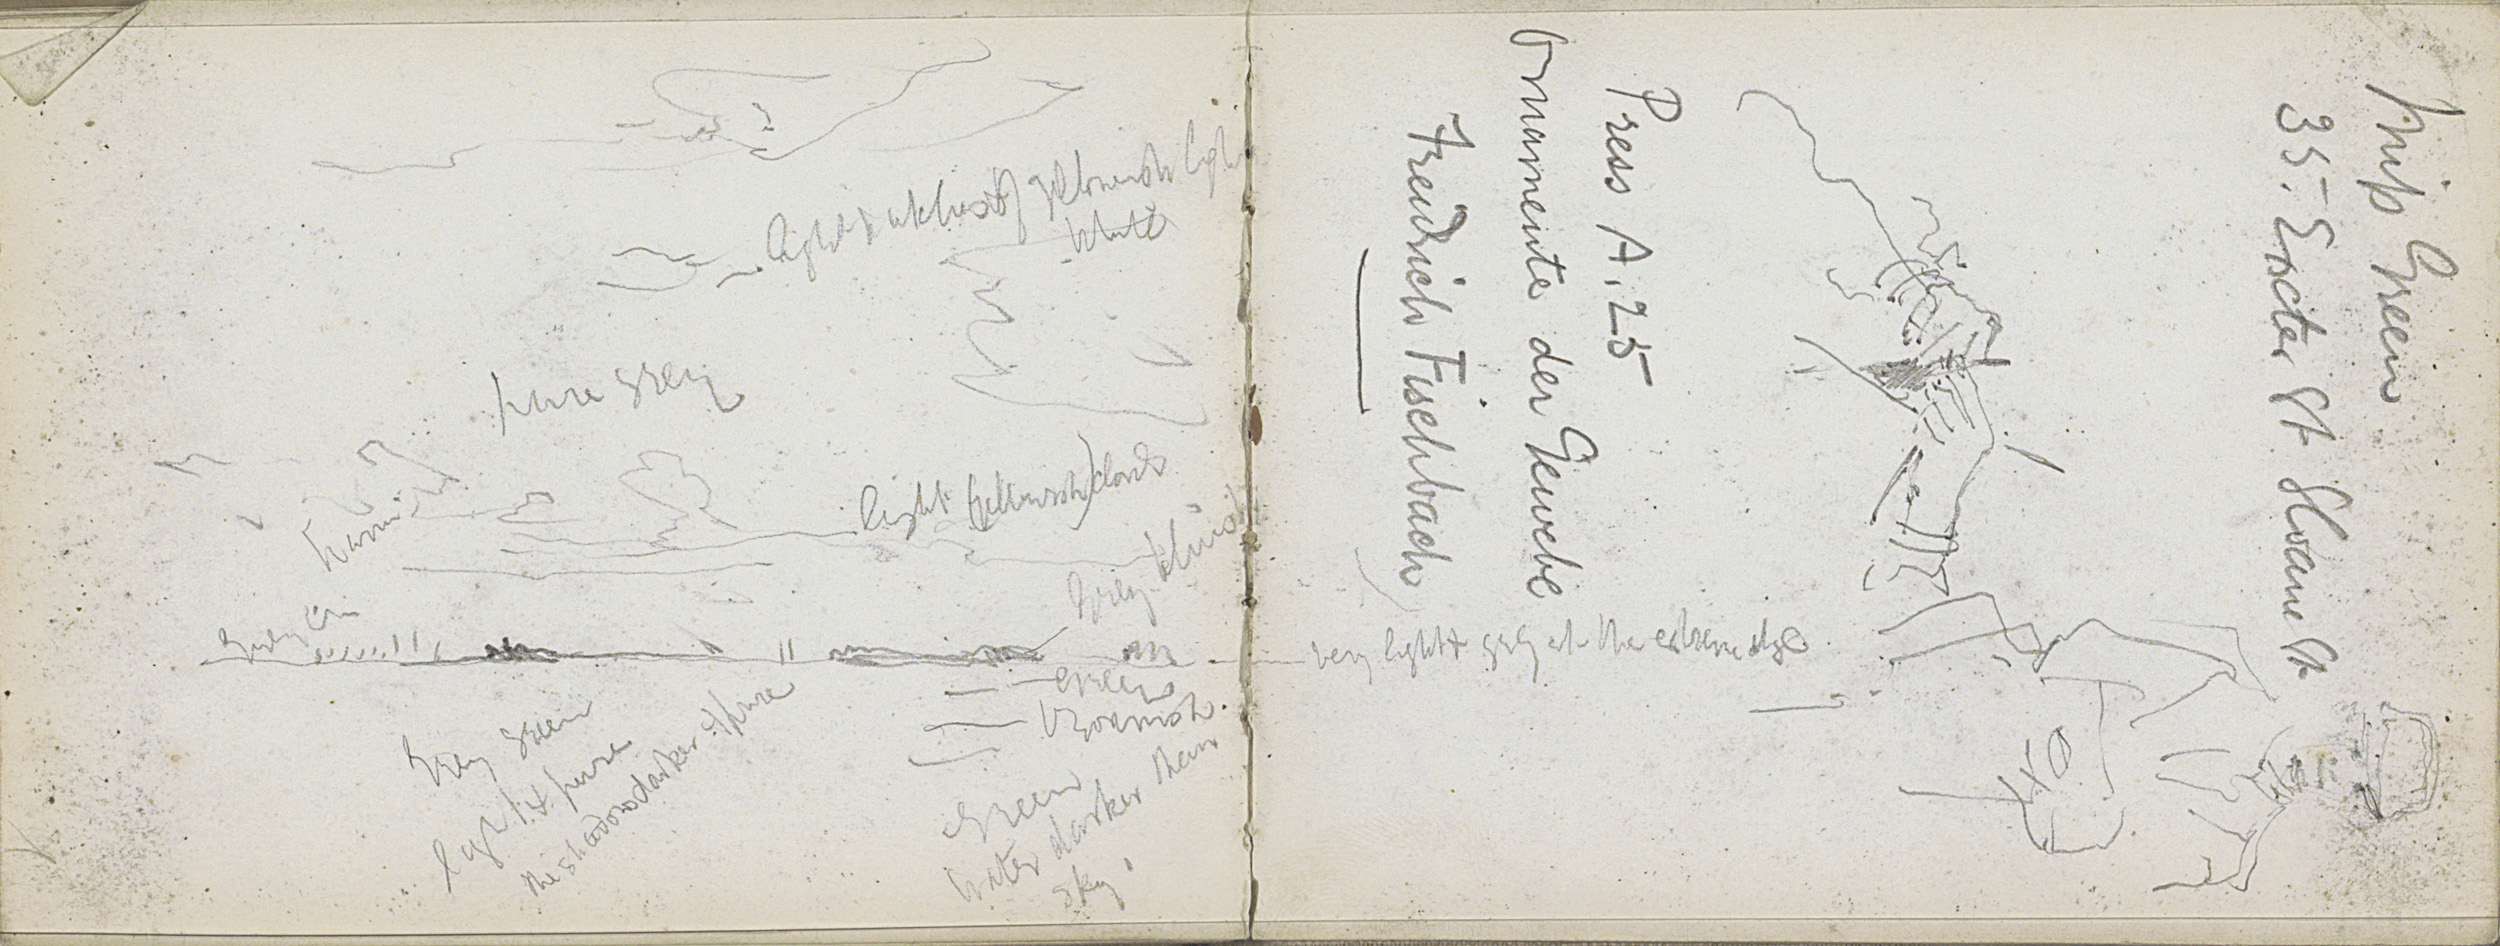 light & whitest of yellowish light
white
pure grey
light (yellowish) clouds
warm
grey
grey
very light & grey at the extreme edge
green
brownish
grey green
light & pure
the shadows darker & pure
green
water darker than
sky.
Miss Green
35. Exeter St. Sloane St
Press A.25
Ornamente der Gewebe
Friedrich Fischbach